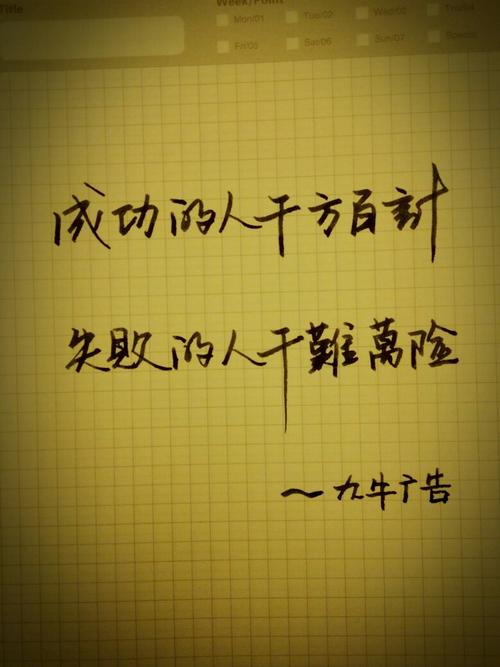 Title
Week/Point
Mon/01 Tue/02 Wed/03 Thu/04
Fri/05 Sat/06 Sun/07
成功的人千方百計
失敗的人千難萬险
~九牛广告